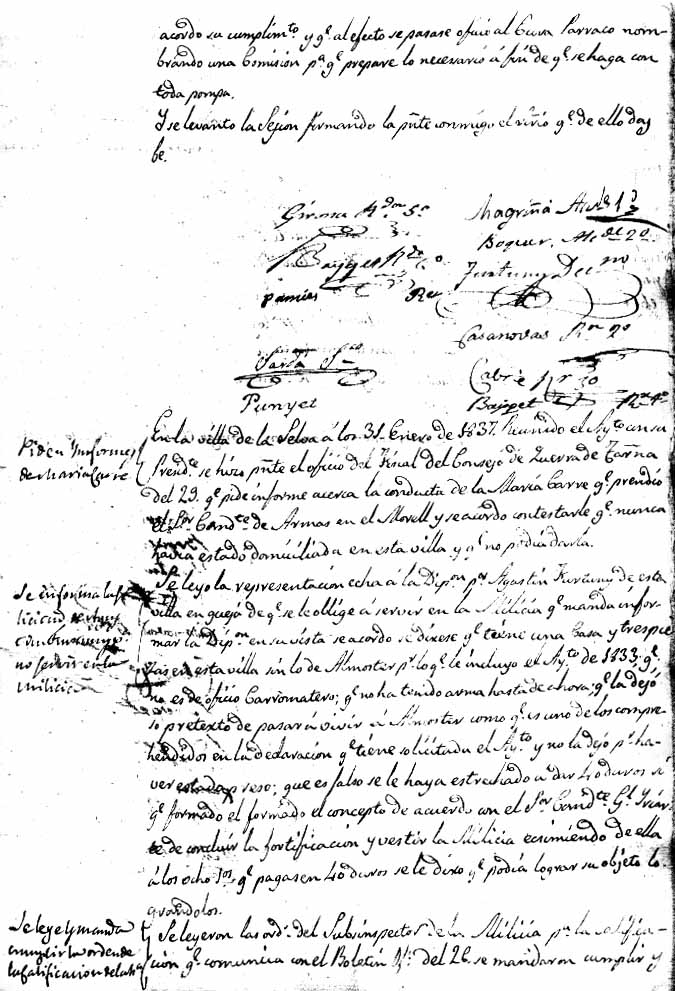 acordo su cumplim.to y q.e al efecto se pasase oficio al Cura Parraco nom-
brando una Comision p.a q.e prepare lo necesario á fin de q.e se haga con
toda pompa.
Y se levantó la Sesion firmando la pñte conmigo el srio q.e de ello doy
fe.
Girona R.dor 5.o
Magriñá Alc.de 1.o
Boquer. Alc.de 2.o
Fortuny Dec.no
pamies Re.r
Casanovas R.or 2.o
Sardá S.
Cabré R.r 3.o
Punyet
R.or 4.o
Piden Ynformes
de Maria Carré
En la villa de la Selva á los 31. Enero de 1837. Reunido el Ay.to con su
Presid.te se hizo pñte el oficio del Fiscal del Consejo de Guerra de Tarrña
del 29. q.e pide informe acerca la conducta de la María Carre q.e prendió
el S.or Com.te de Armas en el Morell y se acordo contestarle q.e nunca
había estado domiciliada en esta villa y q.e no podia darla.
Se informa la so
licitud de
no servir en la
milicia
Se leyo la representacion echa á la Dip.on p.r Agustin Fortuny de esta
villa en quejó de q.e se le obligue á servir en la Milicia q.e manda infor-
mar la Dip.on en su vista se acordo se dixese q.e tiene una Casa y tres pie
zas en esta villa sin lo de Almoster p.r lo q.e le incluyo el Ay.to de 1833; q.e
no es de oficio Carromatero; q.e no ha tenido arma hasta de ahora; q.e la dejó
so pretexto de pasar á vivir á Almoster como q.e es uno de los compre-
hendidos en la declaracion q.e tiene solicitada el Ay.to y no la dejó p.r ha-
ver estado preso; que es falso se le haya estrechado a dar 40 duros si
q.e formado el formado el concepto de acuerdo con el S.or Com.te G.l
de concluir la fortificacion y vestir la Milicia ecsimiendo de ella
á los ocho q.e pagasen 40 duros se le dixo q.e podia lograr su objeto lo-
grandolos.
Se leye y manda
cumplir la orden de
la calificacion de la M.a
Se leyeron las ord.s del Subinspector de la Milicia p.a la califica-
cion q.e comunica con el Boletin del 26. se mandaron cumplir y